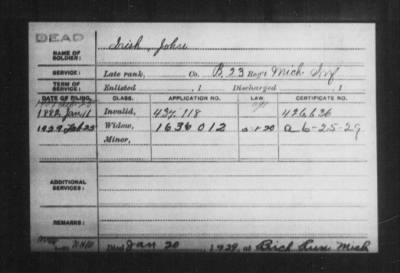 DEAD
NAME OF SOLDIER: Irish, John
SERVICE: Late rank, Co. B, 23 Reg't Mich Inf
TERM OF SERVICE: Enlisted , 1 Discharged , 1
DATE OF FILING. CLASS. APPLICATION NO. LAW. CERTIFICATE NO.
1882 Jan 16 Invalid, 437.118 426636
1929 Feb 25 Widow, 1636012 a 6-25-29
Minor,
ADDITIONAL SERVICES:
REMARKS:
Died Jan 20, 1929, at Birch Run Mich